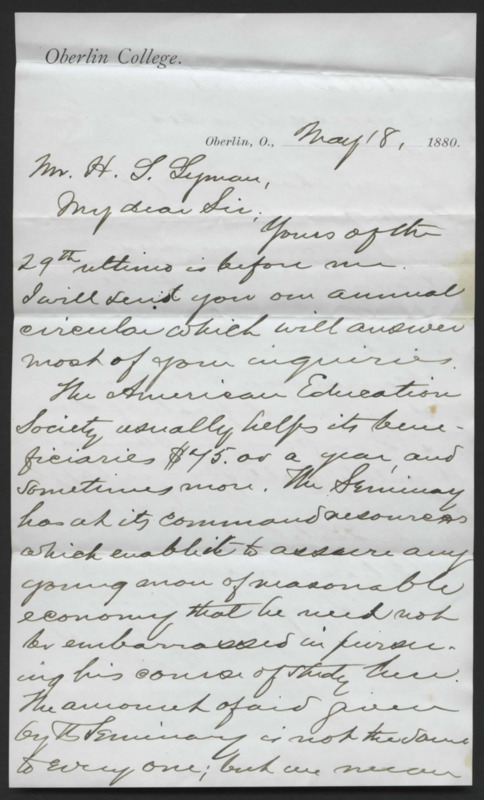 Oberlin College.
Oberlin, O., May 18, 1880.
Mr. H. S. Lyman,
My dear Sir,
Yours of the
29th ultimo is before me.
I will send you our annual
circular which will answer
most of your inquiries.
The American Education
Society usually helps its bene-
ficiaries $75.00 a year, and
sometimes more. The Seminary
has at its command resources
which enable it to assure any
young man of reasonable
economy that he need not
be embarrassed in pursu-
ing his course of study here.
The amount of aid given
by the Seminary is not the same
to every one; but we mean